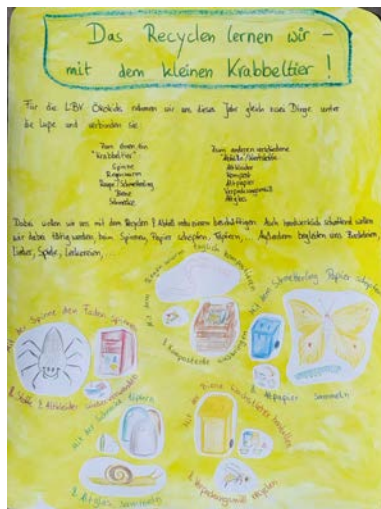 Das Recyclen lernen wir -
mit dem kleinen Krabbeltier !
Für die LBV Ökokids nehmen wir uns dieses Jahr gleich zwei Dinge unter
die Lupe und verbinden sie
Zum einen ein
"Krabbeltier"
Spinne
Regenwurm
Raupe/Schmetterling
Biene
Schnecke
Zum anderen verschiedene
Abfälle/Wertstoffe
Altkleider
Kompost
Altpapier
Verpackungsmüll
Altglas
Dabei wollen wir uns mit dem Recyclen & Abfall reduzieren beschäftigen. Auch handwerklich schaffend wollen
wir dabei tätig werden, beim Spinnen, Papier schöpfen, Töpfern, ... Außerdem begleiten uns Basteleien,
Lieder, Spiele, Lernkarten, ...
Mit der Spinne den Faden spinnen
& Stoffe & Altkleider wiederverwenden
Mit dem Regenwurm täglich kompostieren
& Komposterde einbringen
Mit dem Schmetterling Papier schöpfen
& Altpapier sammeln
Mit der Schnecke töpfern
& Altglas sammeln
Mit der Biene Wachstücher herstellen
& Verpackungsmüll recyclen